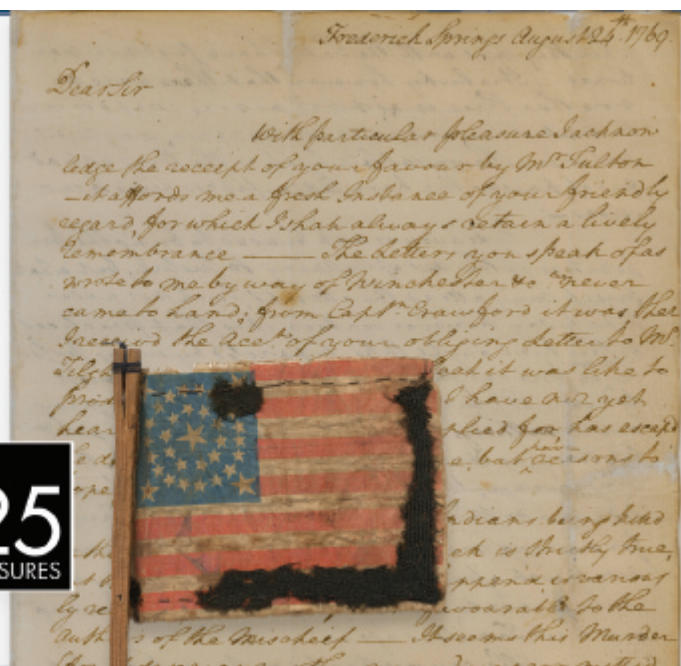 Frederick Springs August 24th. 1769.
Dear Sir
With particular pleasure I acknow
ledge the receipt of your favour by Mr Fulton
—it affords me a fresh Instance of your friendly
regard, for which I shall always retain a lively
remembrance —— The Letters you speak of as
wrote to me by way of Winchester &c never
came to hand; from Captn Crawford it was that
I received the Acct of your obliging Letter to Mr.
it was like to
I have not yet
hear plied for has escap
e, but reasons to
Indians being kill
ch is strictly true,
various
ly re favourable to the
auth s of the Mischief —— It seems this Murder
25
SURES